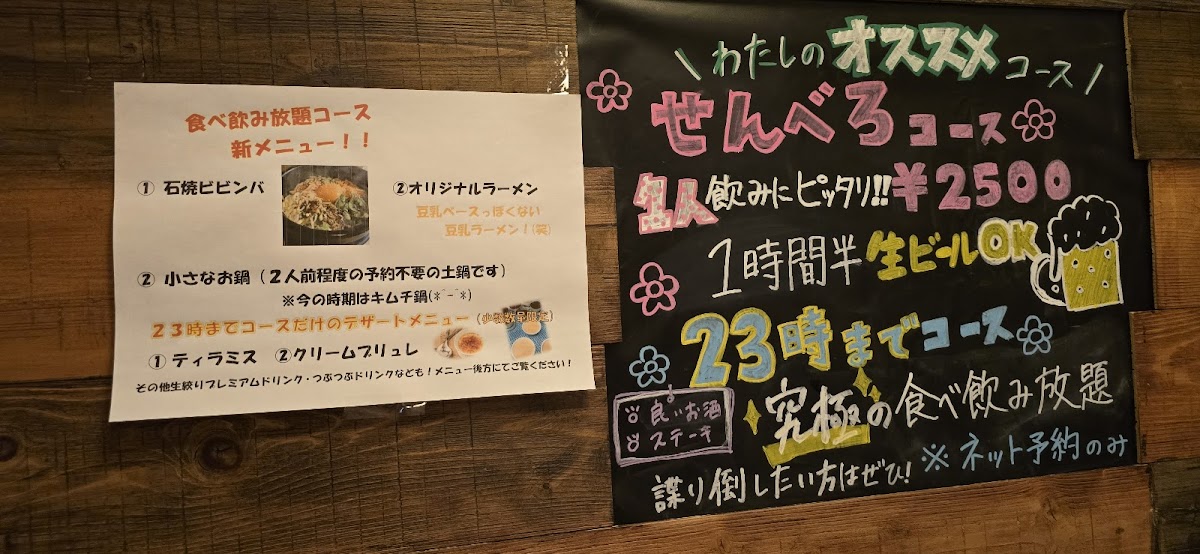 食べ飲み放題コース
新メニュー！！
① 石焼ビビンバ
②オリジナルラーメン
豆乳ベースっぽくない
豆乳ラーメン！(笑)
② 小さなお鍋（２人前程度の予約不要の土鍋です）
※今の時期はキムチ鍋(*ˉ-ˉ*)
２３時までコースだけのデザートメニュー（少数数早限定）
①ティラミス ②クリームブリュレ
その他生絞りプレミアムドリンク・つぶつぶドリンクなども！メニュー後方にてご覧ください！
\ わたしの オススメ コース /
せんべろ コース
1人 飲みにピッタリ!! ¥2500
1時間半 生ビールOK
23時までコース
良いお酒
ステーキ
究極の食べ飲み放題
※ ネット予約のみ
喋り倒したい方はぜひ!